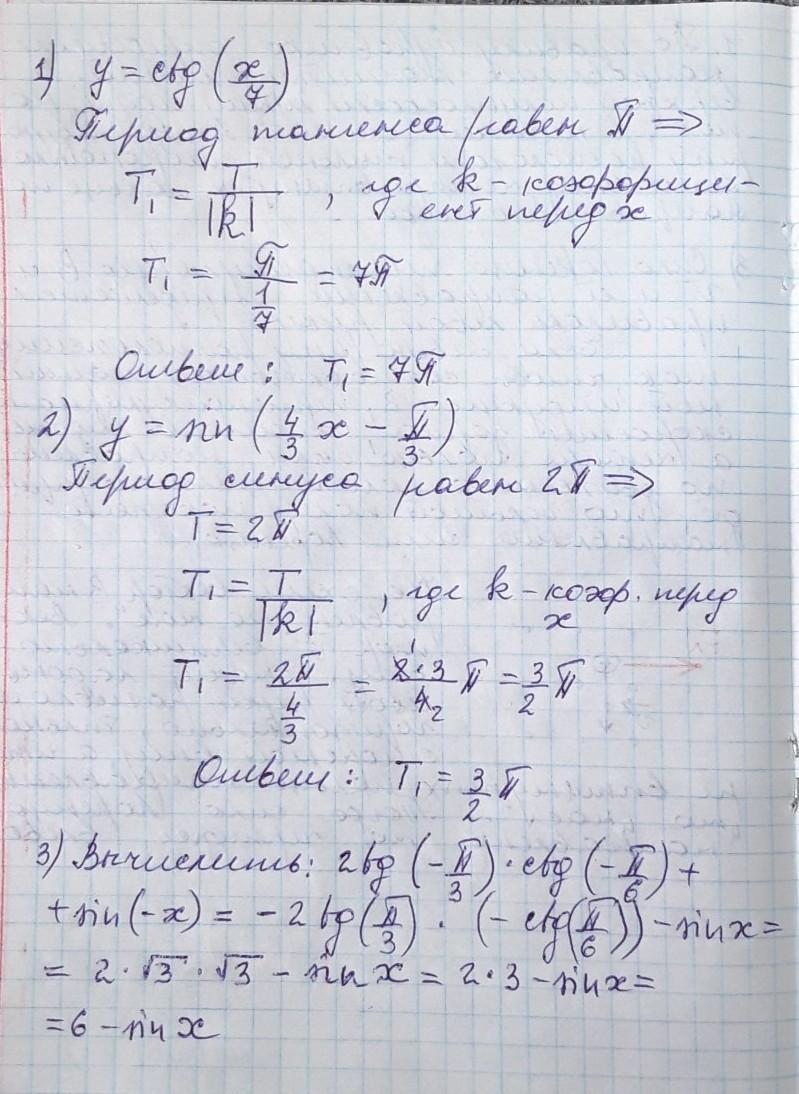 1) y = ctg (x/7)
Период тангенса равен π ⇒
T₁ = T/|k| , где k - коэффици-
ент перед x
T₁ = π/(1/7) = 7π
Ответ: T₁ = 7π
2) y = sin (4/3 x - π/3)
Период синуса равен 2π ⇒
T = 2π
T₁ = T/|k| , где k - коэф. перед
x
T₁ = 2π/(4/3) = 2·3/4 π = 3/2 π
Ответ: T₁ = 3/2 π
3) Вычислить: 2tg (-π/3) · ctg (-π/6) +
+ sin(-x) = -2tg(π/3) · (-ctg(π/6)) - sin x =
= 2·√3·√3 - sin x = 2·3 - sin x =
= 6 - sin x